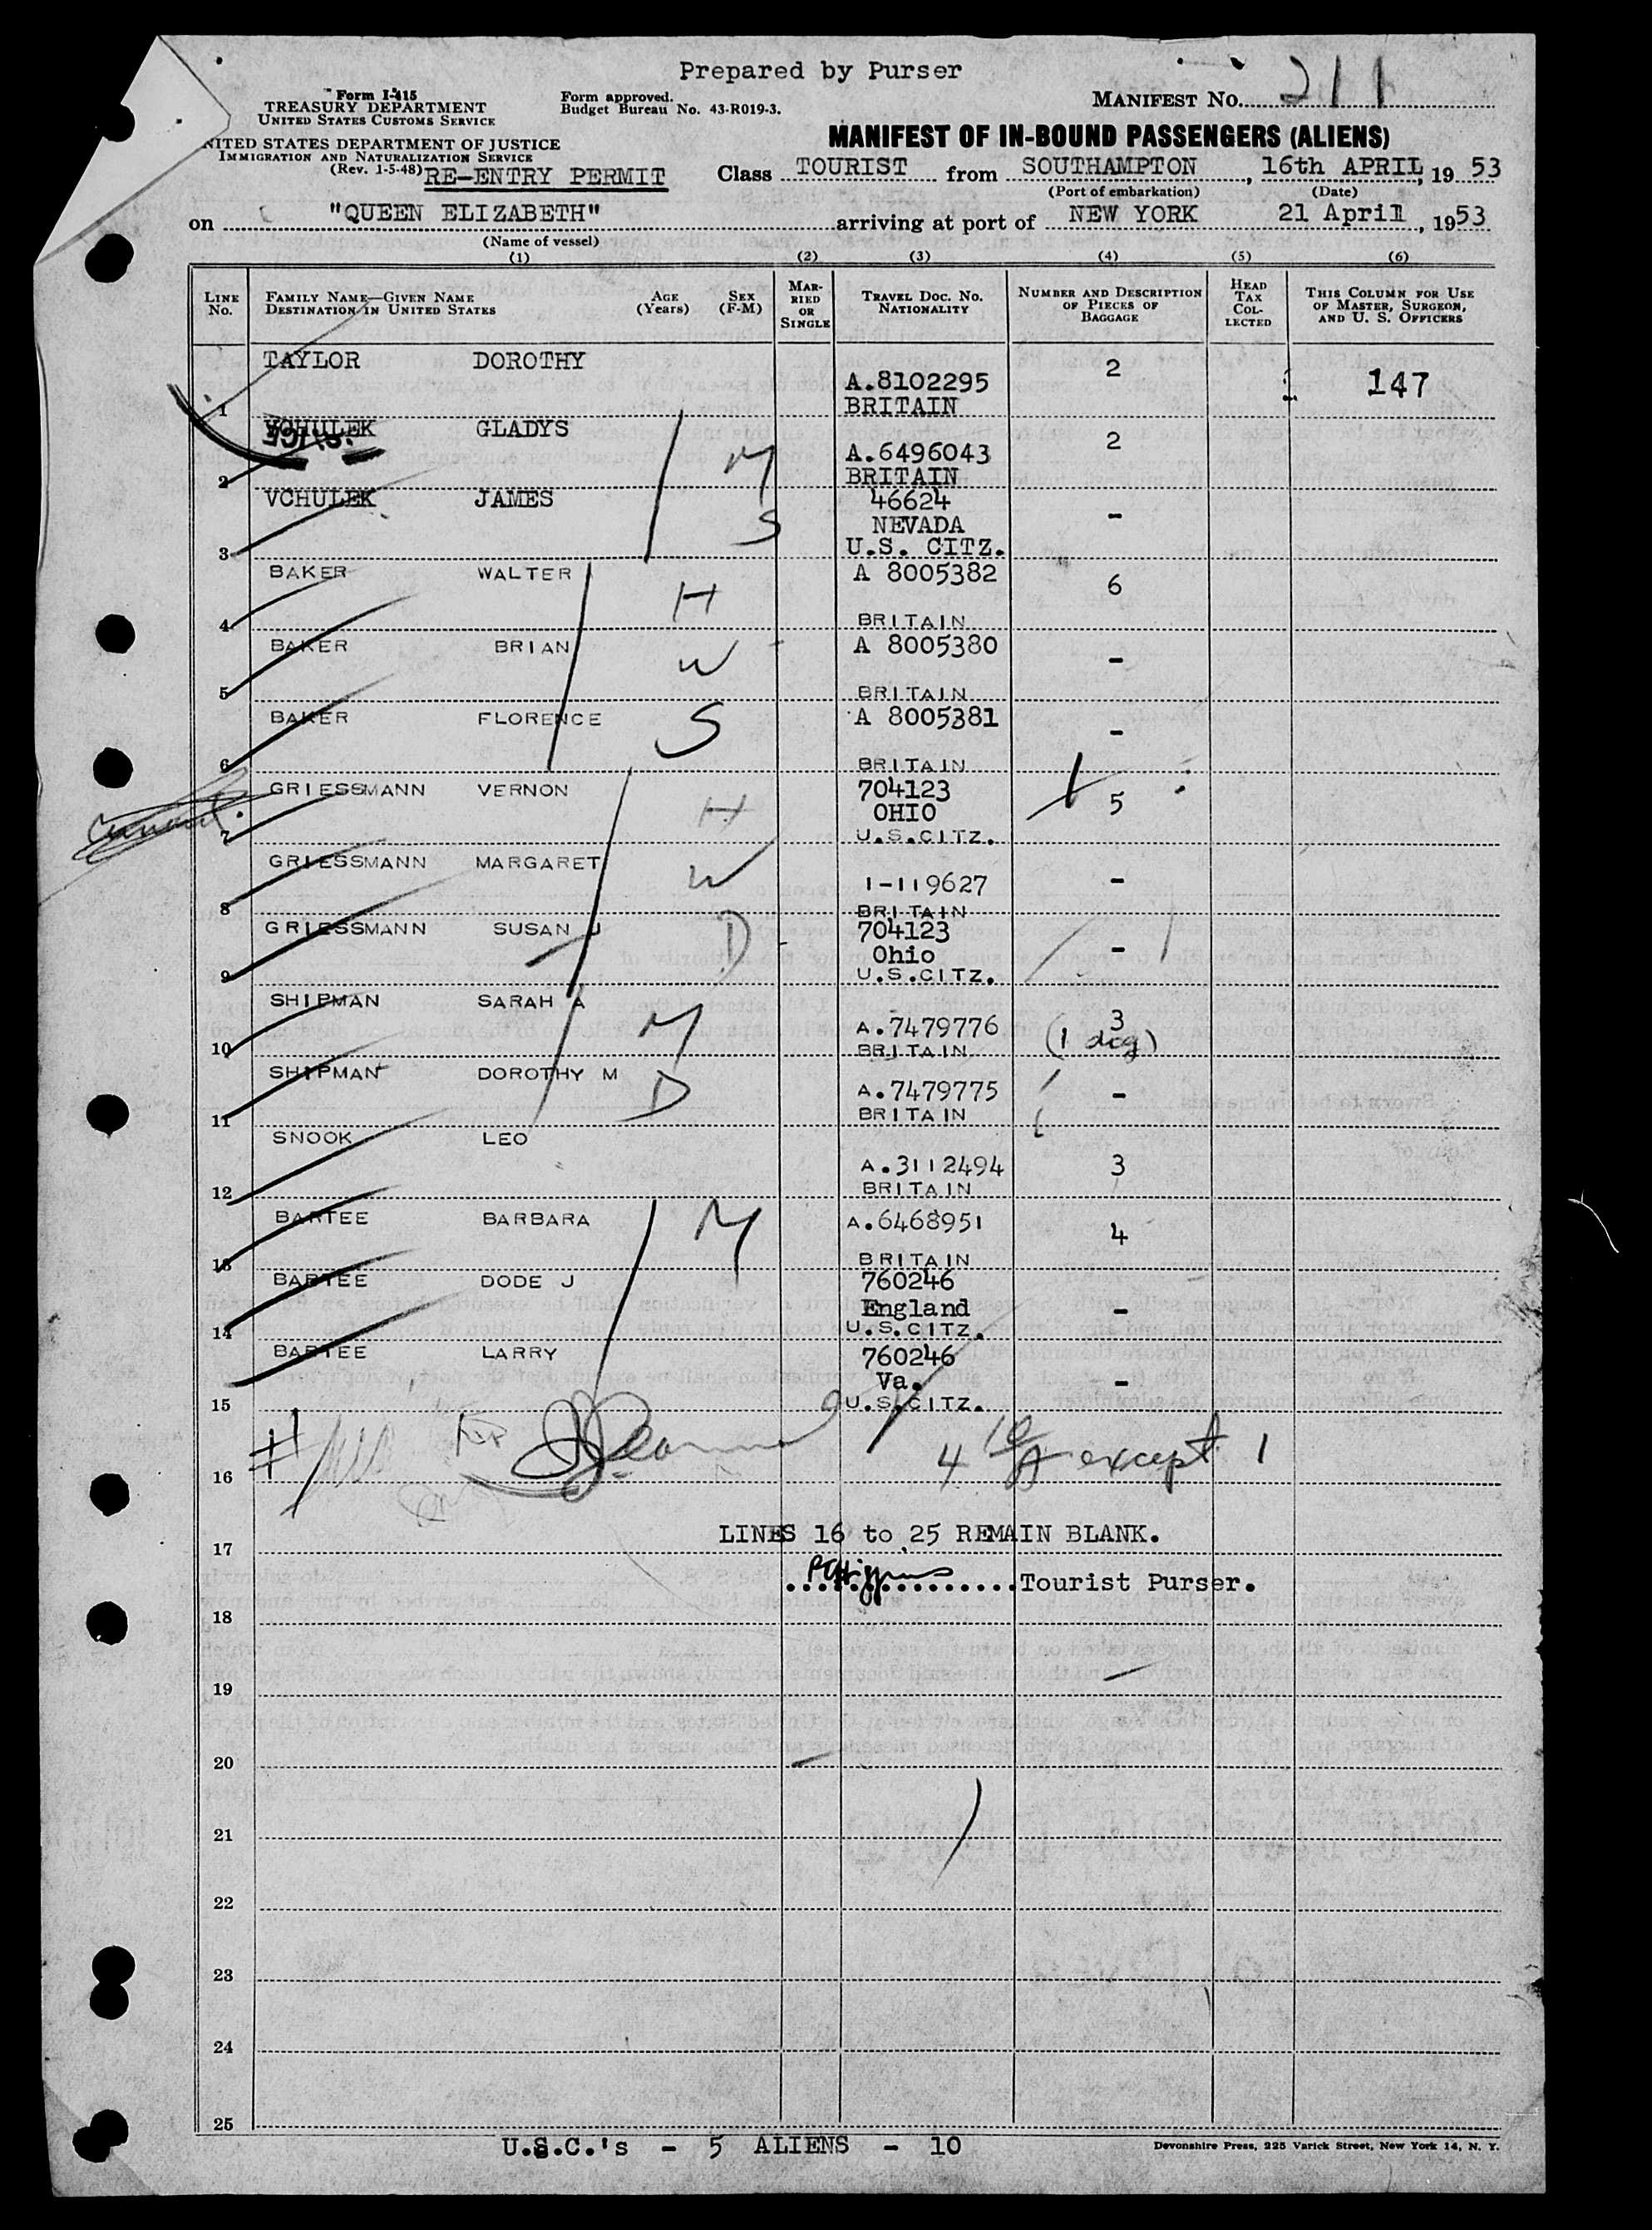 Prepared by Purser
Form I-415
TREASURY DEPARTMENT
UNITED STATES CUSTOMS SERVICE
Form approved.
Budget Bureau No. 43-R019-3.
MANIFEST NO. 211
NITED STATES DEPARTMENT OF JUSTICE
IMMIGRATION AND NATURALIZATION SERVICE
(Rev. 1-5-48) RE-ENTRY PERMIT
MANIFEST OF IN-BOUND PASSENGERS (ALIENS)
Class TOURIST from SOUTHAMPTON, 16th APRIL, 19 53
(Port of embarkation) (Date)
on "QUEEN ELIZABETH" arriving at port of NEW YORK 21 April, 1953
(Name of vessel)
(1) (2) (3) (4) (5) (6)
LINE No. FAMILY NAME—GIVEN NAME DESTINATION IN UNITED STATES AGE (Years) SEX (F-M) MARRIED OR SINGLE TRAVEL DOC. NO. NATIONALITY NUMBER AND DESCRIPTION OF PIECES OF BAGGAGE HEAD TAX COLLECTED THIS COLUMN FOR USE OF MASTER, SURGEON, AND U. S. OFFICERS
1 TAYLOR DOROTHY A.8102295 BRITAIN 2 147
2 VCHULEK GLADYS M A.6496043 BRITAIN 2
3 VCHULEK JAMES S 46624 NEVADA U.S. CITZ. -
4 BAKER WALTER H A 8005382 BRITAIN 6
5 BAKER BRIAN W A 8005380 BRITAIN -
6 BAKER FLORENCE S A 8005381 BRITAIN -
7 GRIESSMANN VERNON H 704123 OHIO U.S.CITZ. 5
8 GRIESSMANN MARGARET W 1-119627 BRITAIN -
9 GRIESSMANN SUSAN J D 704123 Ohio U.S.CITZ. -
10 SHIPMAN SARAH A M A.7479776 BRITAIN 3 (1 dog)
11 SHIPMAN DOROTHY M D A.7479775 BRITAIN -
12 SNOOK LEO A.3112494 BRITAIN 3
13 BARTEE BARBARA M A.6468951 BRITAIN 4
14 BARTEE DODE J 760246 England U.S.CITZ. -
15 BARTEE LARRY 760246 Va. U.S.CITZ. -
16 except 1
LINES 16 to 25 REMAIN BLANK.
17
Tourist Purser.
18
19
20
21
22
23
24
25
U.S.C.'s - 5 ALIENS - 10
Devonshire Press, 225 Varick Street, New York 14, N. Y.